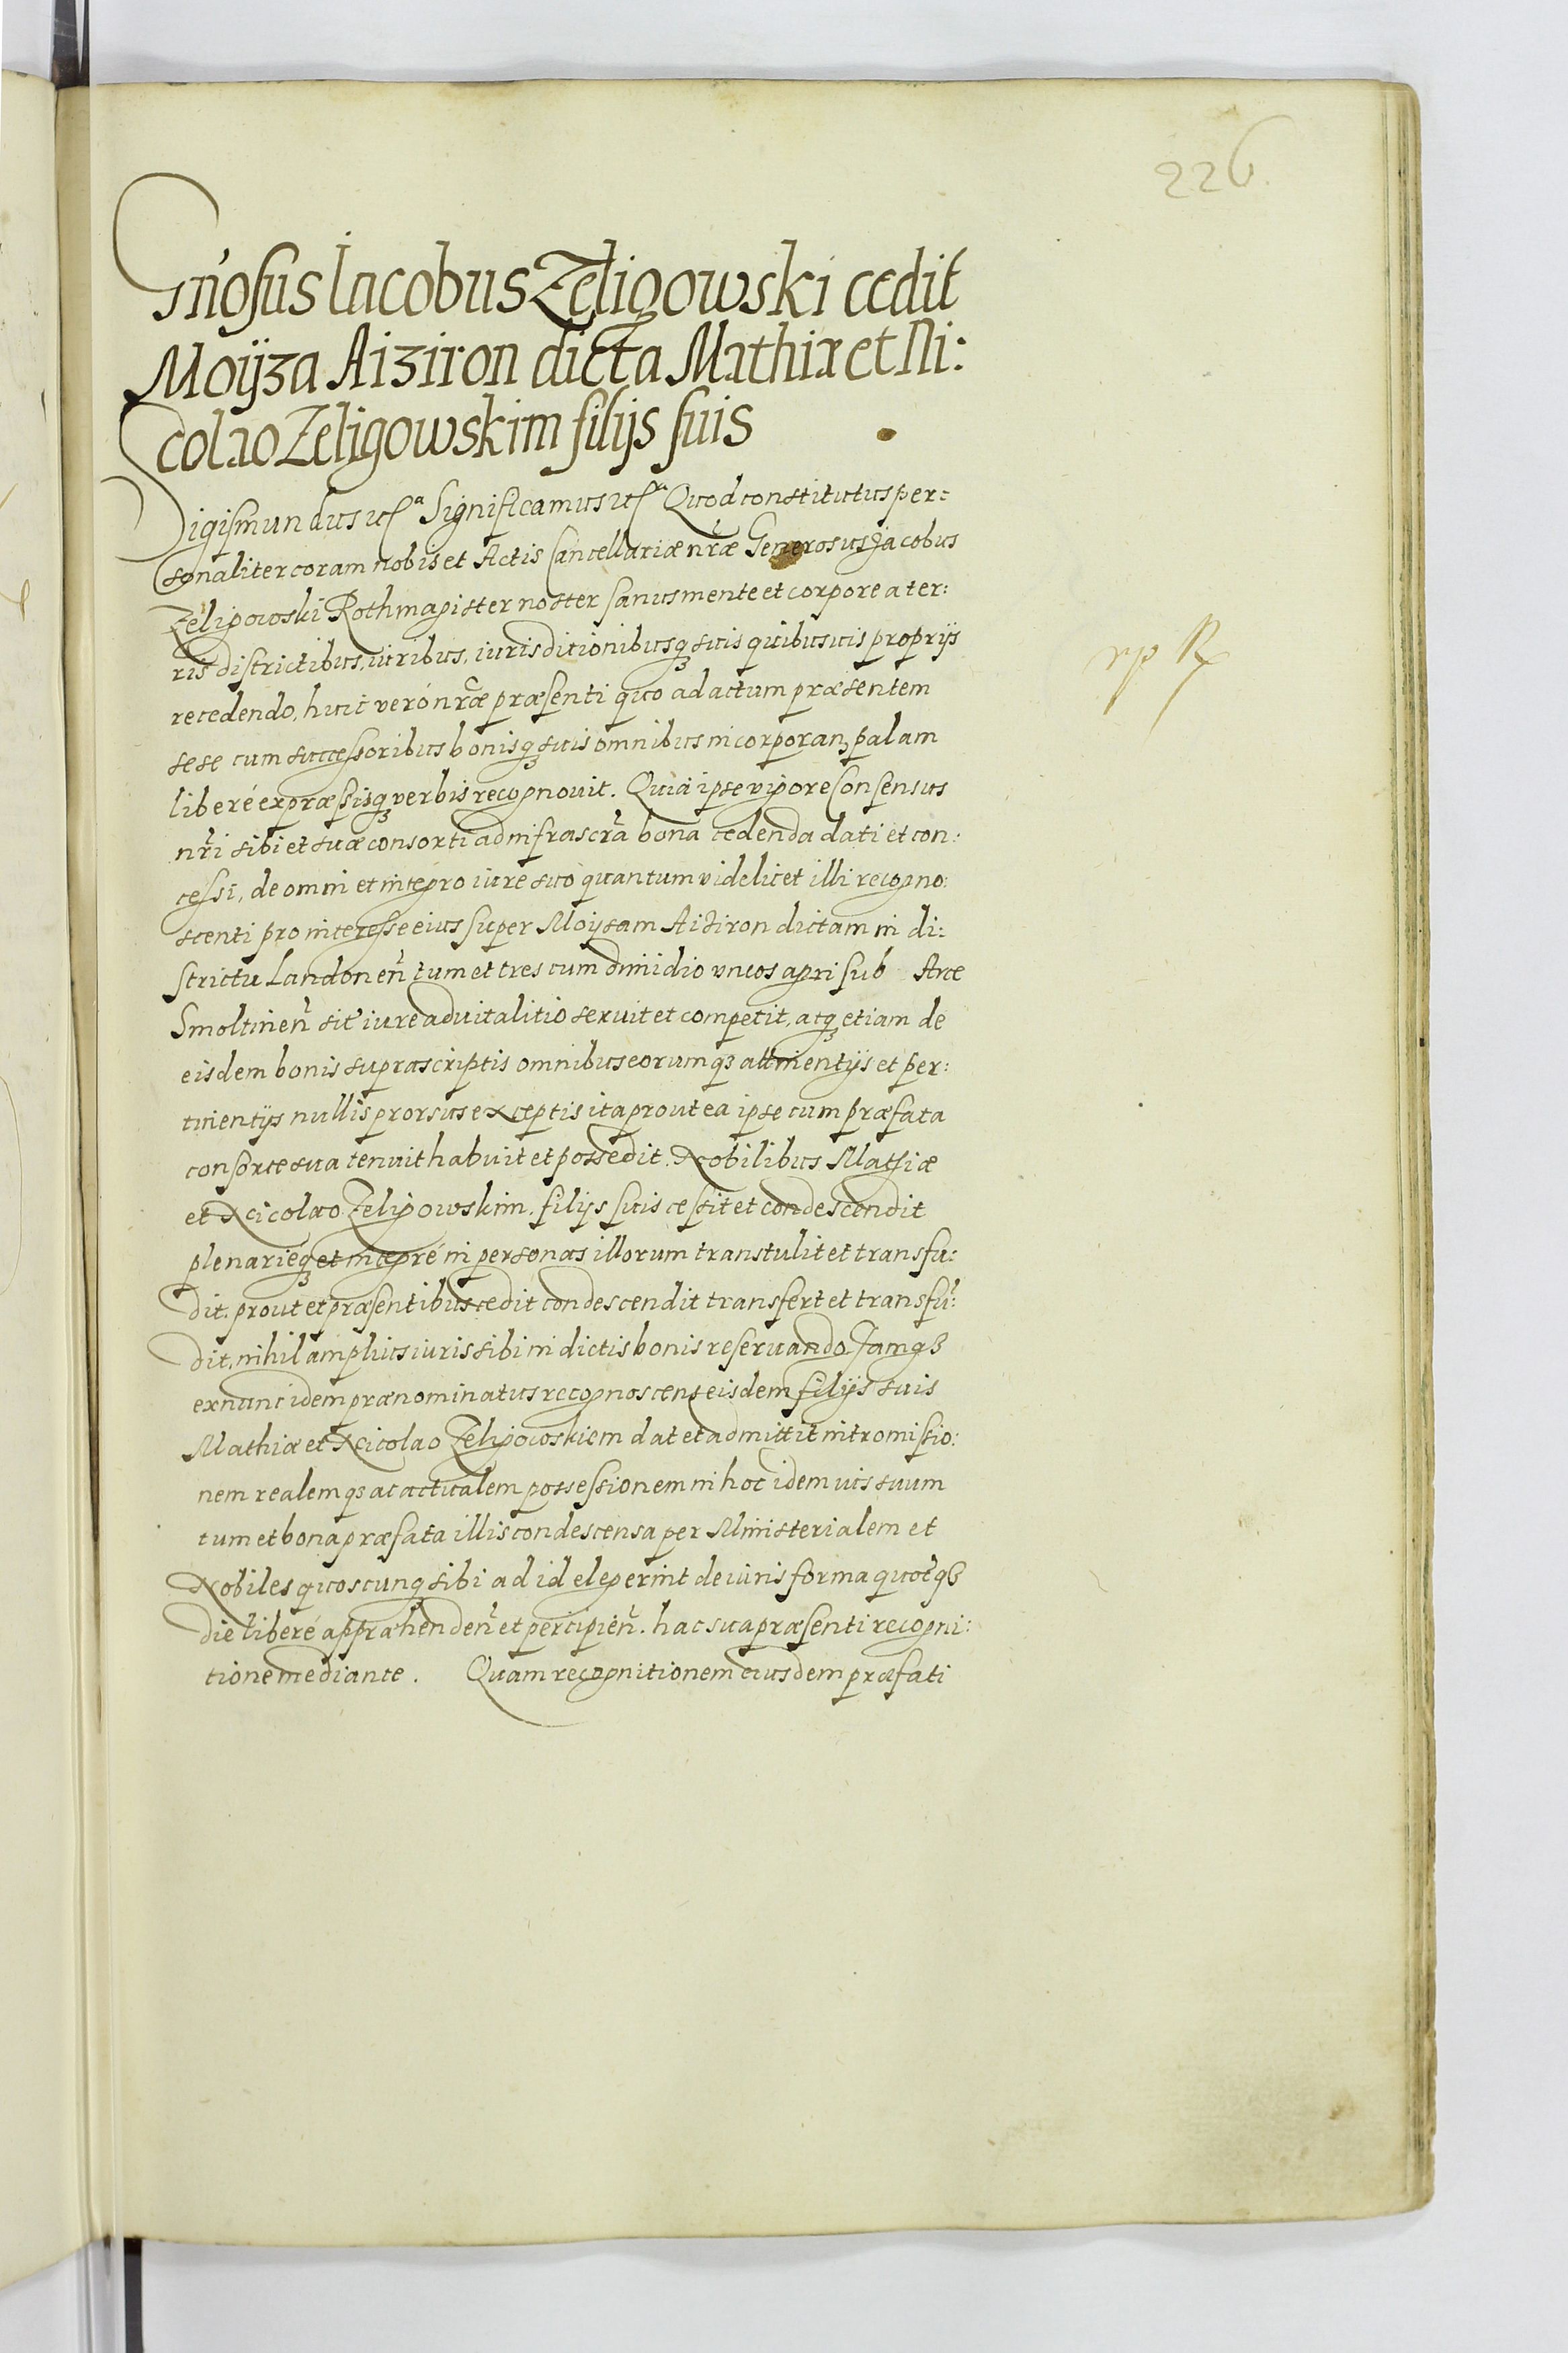 226
Gn̄osus Iacobus Zeligowski cedit
Moÿza Aiziron dicta Mathiæ et Ni:
colao Zeligowskim filijs suis
Sigismundus ꝛcᵃ Significamus ꝛcᵃ Quod constitutus per:
sonaliter coram nobis et Actis Cancellariæ nr̄æ Generosus Jacobus
Zeligowski Rothmagister noster sanus mente et corpore a ter:
ris districtibus, iuribus, iurisditionibusq₃ suis quibusuis proprijs
recedendo, huic veró nr̄æ præsenti quo ad actum præsentem
sese cum successoribus bonisq₃ suis omnibus incorporan₃ palam
liberé expræssisq₃ verbis recognouit. Quia ipse vigore Consensus
nr̄i sibi et suæ consorti ad infrascr̄a bona cedenda dati et con:
cessi, de omni et integro iure suo quantum videlicet illi recogno:
scenti pro interesse eius super Moÿsam Aiziron dictam in di:
strictu Landonen̄ tum et tres cum dimidio vncos agri sub Arce
Smoltinen̄ sit' iure aduitalitio seruit et competit, atq₃ etiam de
eisdem bonis suprascriptis omnibus eorumq₃ attinentijs et per:
tinentijs nullis prorsus exceptis ita prout ea ipse cum præfata
consorte sua tenuit habuit et possedit. Nobilibus Mathiæ
et Nicolao Zeligowskim. filijs suis cessit et condescendit
plenarieq₃ et integré in personas illorum transtulit et transfu:
dit. prout et præsentibus cedit condescendit transfert et transfu̅:
dit, nihil amplius iuris sibi in dictis bonis reseruando Jamq₃
exnunc idem prænominatus recognoscens eisdem filijs suis
Mathiæ et Nicolao Zeligowskiem dat et admittit intromissio:
nem realemq₃ ac actualem possessionem in hoc idem ius suum
tum et bona præfata illis condescensa per Ministerialem et
Nobiles quoscunq₃ sibi ad id elegerint de iuris forma quotq₃
die liberé appræhenden̄ et percipien̄. hac sua præsenti recogni:
tione mediante. Quam recognitionem eiusdem præfati